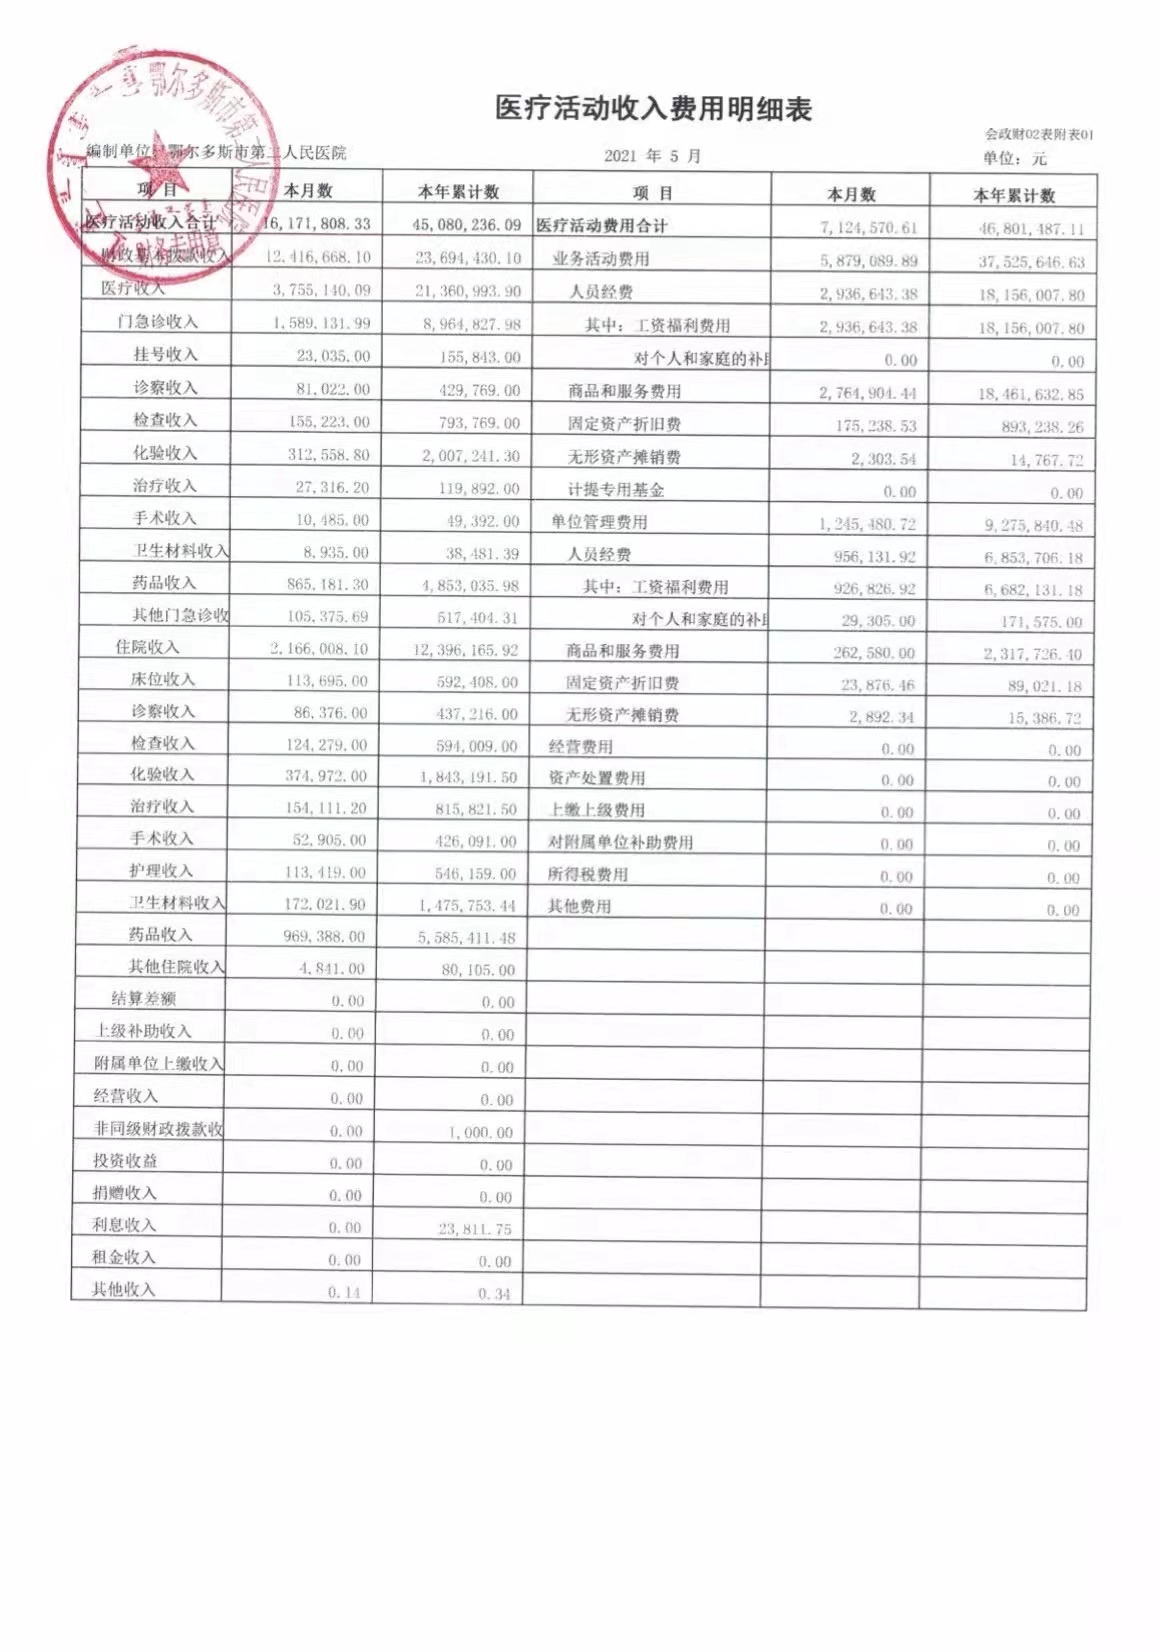 鄂尔多斯市第二人民医院
财务专用章
医疗活动收入费用明细表
会政财02表附表01
编制单位：鄂尔多斯市第二人民医院 2021 年 5 月 单位：元
项 目 本月数 本年累计数 项 目 本月数 本年累计数
医疗活动收入合计 16,171,808.33 45,080,236.09 医疗活动费用合计 7,124,570.61 46,801,487.11
财政基本拨款收入 12,416,668.10 23,694,430.10 业务活动费用 5,879,089.89 37,525,646.63
医疗收入 3,755,140.09 21,360,993.90 人员经费 2,936,643.38 18,156,007.80
门急诊收入 1,589,131.99 8,964,827.98 其中：工资福利费用 2,936,643.38 18,156,007.80
挂号收入 23,035.00 155,843.00 对个人和家庭的补助 0.00 0.00
诊察收入 81,022.00 429,769.00 商品和服务费用 2,764,904.44 18,461,632.85
检查收入 155,223.00 793,769.00 固定资产折旧费 175,238.53 893,238.26
化验收入 312,558.80 2,007,241.30 无形资产摊销费 2,303.54 14,767.72
治疗收入 27,316.20 119,892.00 计提专用基金 0.00 0.00
手术收入 10,485.00 49,392.00 单位管理费用 1,245,480.72 9,275,840.48
卫生材料收入 8,935.00 38,481.39 人员经费 956,131.92 6,853,706.18
药品收入 865,181.30 4,853,035.98 其中：工资福利费用 926,826.92 6,682,131.18
其他门急诊收 105,375.69 517,404.31 对个人和家庭的补助 29,305.00 171,575.00
住院收入 2,166,008.10 12,396,165.92 商品和服务费用 262,580.00 2,317,726.40
床位收入 113,695.00 592,408.00 固定资产折旧费 23,876.46 89,021.18
诊察收入 86,376.00 437,216.00 无形资产摊销费 2,892.34 15,386.72
检查收入 124,279.00 594,009.00 经营费用 0.00 0.00
化验收入 374,972.00 1,843,191.50 资产处置费用 0.00 0.00
治疗收入 154,111.20 815,821.50 上缴上级费用 0.00 0.00
手术收入 52,905.00 426,091.00 对附属单位补助费用 0.00 0.00
护理收入 113,419.00 546,159.00 所得税费用 0.00 0.00
卫生材料收入 172,021.90 1,475,753.44 其他费用 0.00 0.00
药品收入 969,388.00 5,585,411.48
其他住院收入 4,841.00 80,105.00
结算差额 0.00 0.00
上级补助收入 0.00 0.00
附属单位上缴收入 0.00 0.00
经营收入 0.00 0.00
非同级财政拨款收 0.00 1,000.00
投资收益 0.00 0.00
捐赠收入 0.00 0.00
利息收入 0.00 23,811.75
租金收入 0.00 0.00
其他收入 0.14 0.34